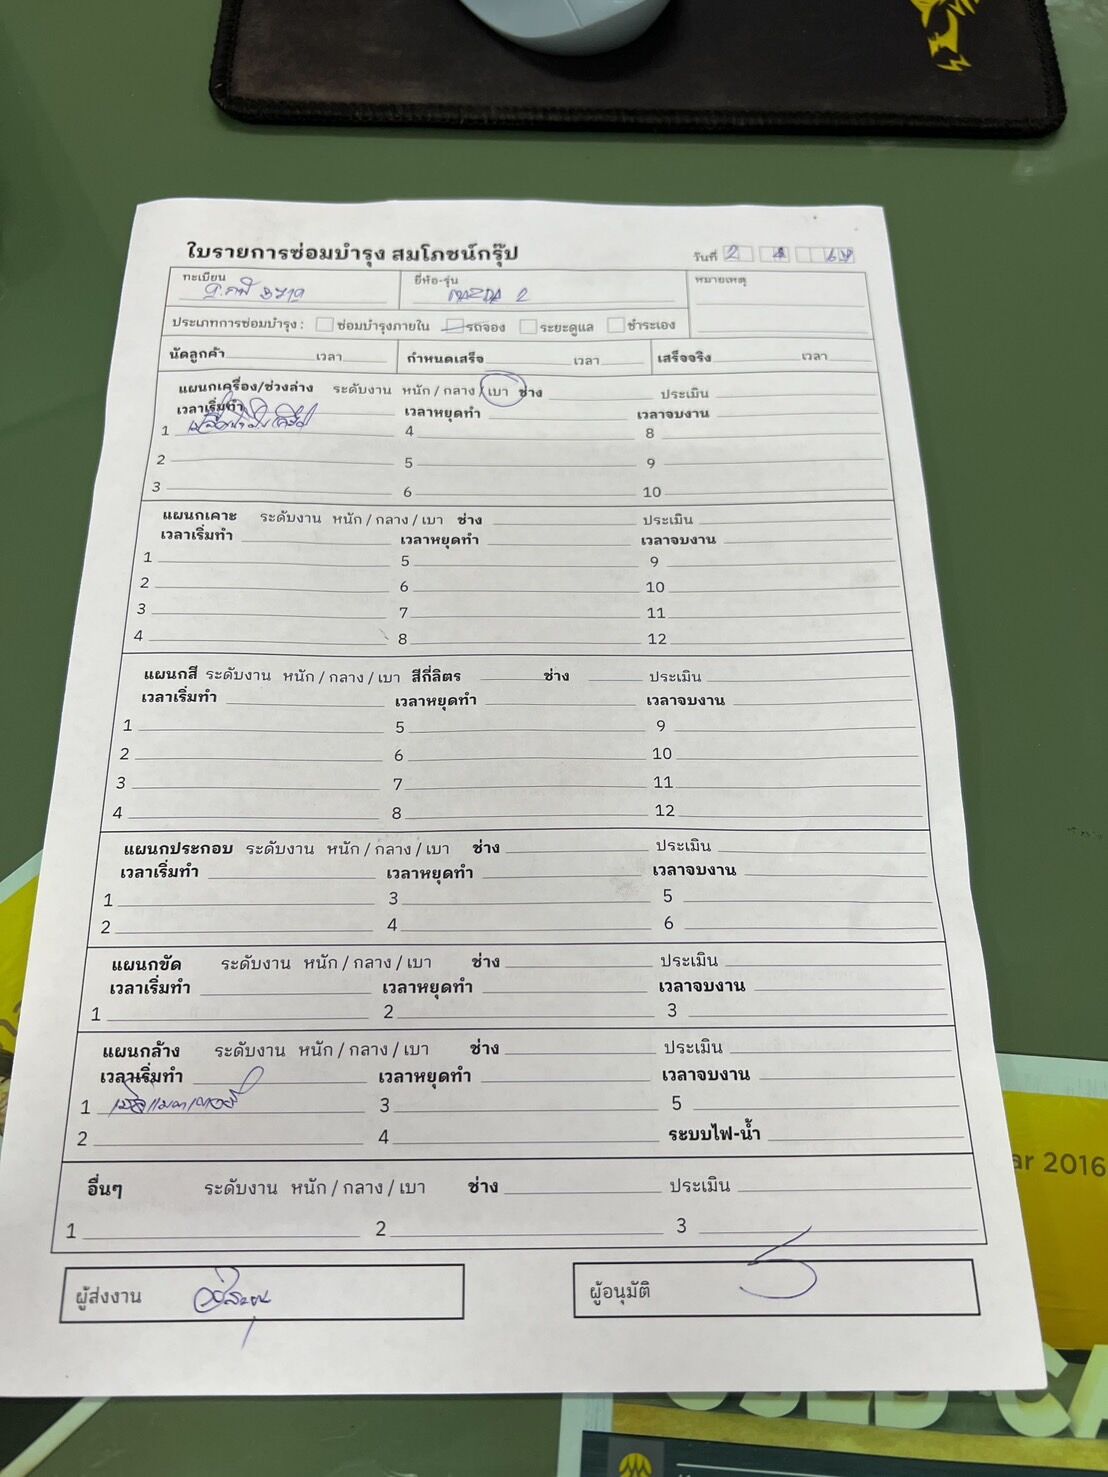 ใบรายการซ่อมบำรุง สมโภชน์กรุ๊ป
วันที่ 2 4
ทะเบียน 3719
ยี่ห้อ-รุ่น MAZDA 2
หมายเหตุ
ประเภทการซ่อมบำรุง : ซ่อมบำรุงภายใน รถจอง ระยะดูแล ชำระเอง
นัดลูกค้า เวลา กำหนดเสร็จ เวลา เสร็จจริง เวลา
แผนกเครื่อง/ช่วงล่าง ระดับงาน หนัก / กลาง / เบา ช่าง ประเมิน
เวลาเริ่มทำ เวลาหยุดทำ เวลาจบงาน
1 4 8
2 5 9
3 6 10
แผนกเคาะ ระดับงาน หนัก / กลาง / เบา ช่าง ประเมิน
เวลาเริ่มทำ เวลาหยุดทำ เวลาจบงาน
1 5 9
2 6 10
3 7 11
4 8 12
แผนกสี ระดับงาน หนัก / กลาง / เบา สีกี่ลิตร ช่าง ประเมิน
เวลาเริ่มทำ เวลาหยุดทำ เวลาจบงาน
1 5 9
2 6 10
3 7 11
4 8 12
แผนกประกอบ ระดับงาน หนัก / กลาง / เบา ช่าง ประเมิน
เวลาเริ่มทำ เวลาหยุดทำ เวลาจบงาน
1 3 5
2 4 6
แผนกขัด ระดับงาน หนัก / กลาง / เบา ช่าง ประเมิน
เวลาเริ่มทำ เวลาหยุดทำ เวลาจบงาน
1 2 3
แผนกล้าง ระดับงาน หนัก / กลาง / เบา ช่าง ประเมิน
เวลาเริ่มทำ เวลาหยุดทำ เวลาจบงาน
1 3 5
2 4 ระบบไฟ-น้ำ
อื่นๆ ระดับงาน หนัก / กลาง / เบา ช่าง ประเมิน
1 2 3
ผู้ส่งงาน
ผู้อนุมัติ
ar 2016
USED CA